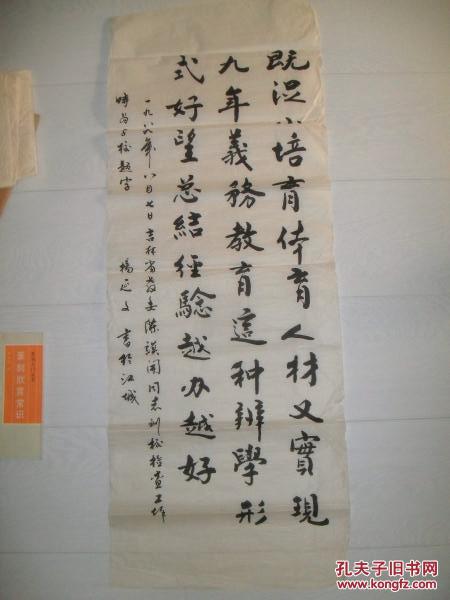 既混小培育体育人材又實現
九年義務教育這种辦學形
式好望总結经驗越办越好
一九八八年八月七日吉林省教委陈謨開同志到校检查工作
時为学校題字
楊延文 書於江城
篆刻欣赏常识
孔夫子旧书网
www.kongfz.com